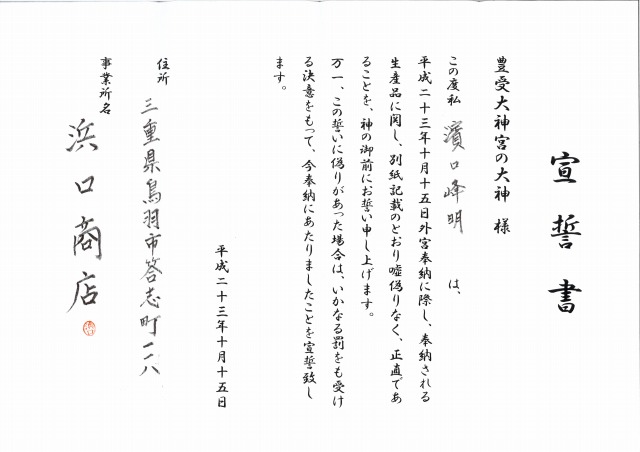 宣誓書
豊受大神宮の大神 様
この度私 濱口峰明 は、
平成二十三年十月十五日外宮奉納に際し、奉納される
生産品に関し、別紙記載のとおり嘘偽りなく、正直であ
ることを、神の御前にお誓い申し上げます。
万一、この誓いに偽りがあった場合は、いかなる罰をも受け
る決意をもって、今奉納にあたりましたことを宣誓致し
ます。
平成二十三年十月十五日
住所 三重県鳥羽市答志町一一八
事業所名 浜口商店